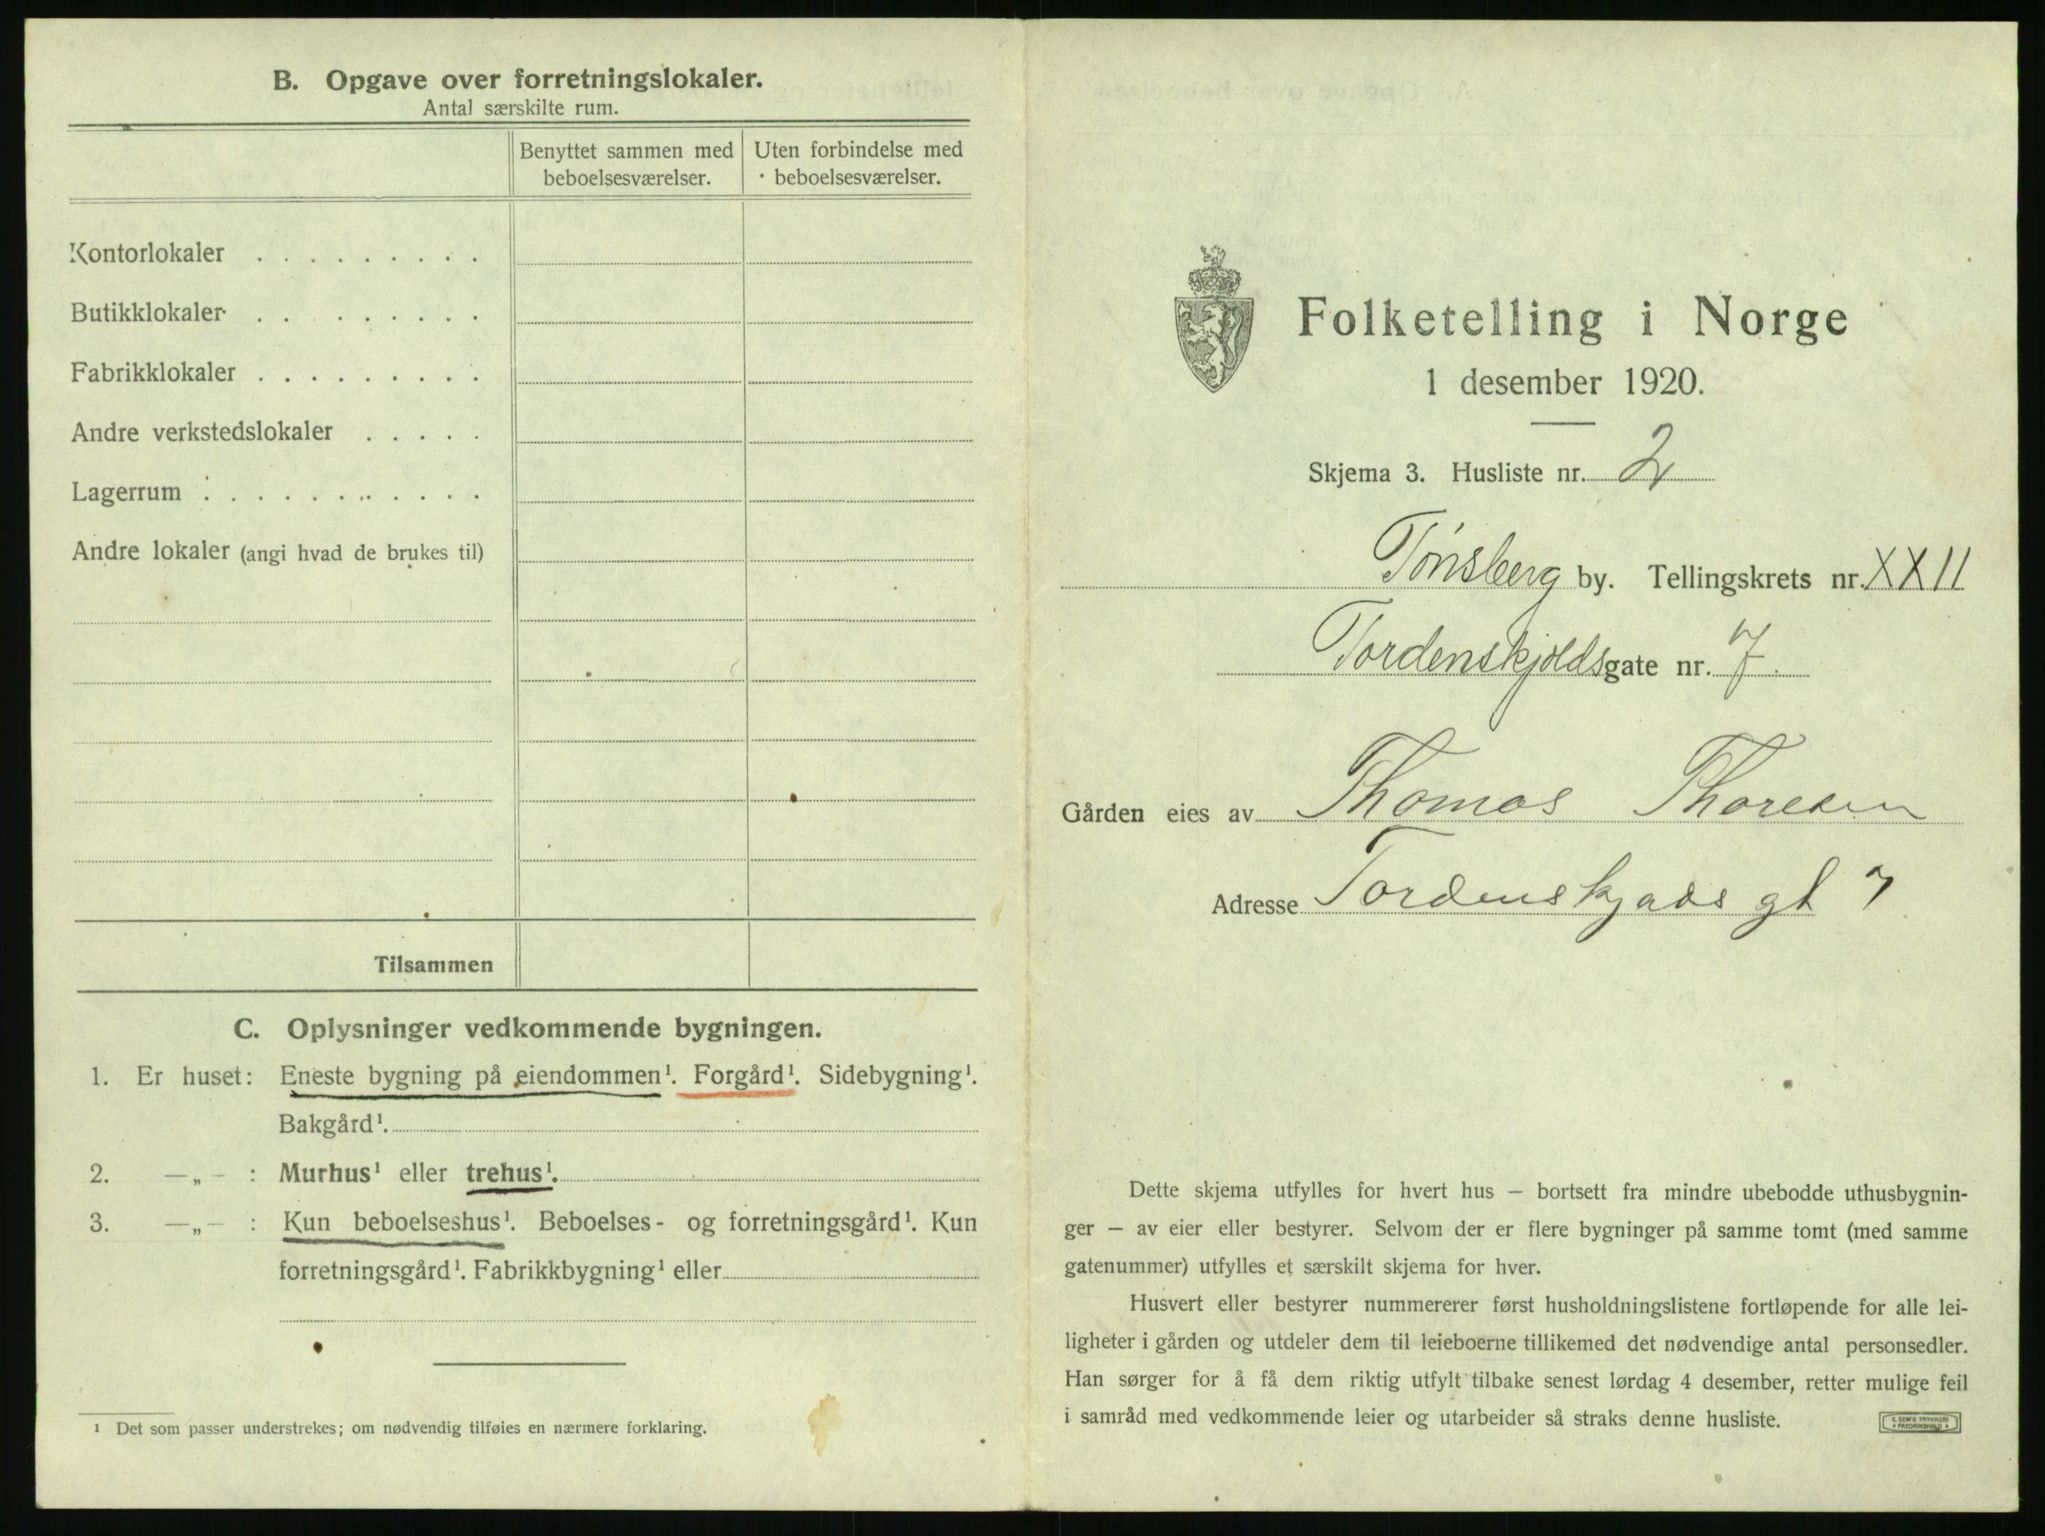 B. Opgave over forretningslokaler.
Antal særskilte rum.
Benyttet sammen med beboelsesværelser.
Uten forbindelse med beboelsesværelser.
Kontorlokaler
Butikklokaler
Fabrikklokaler
Andre verkstedslokaler
Lagerrum
Andre lokaler (angi hvad de brukes til)
Tilsammen
C. Oplysninger vedkommende bygningen.
1. Er huset: Eneste bygning på eiendommen¹. Forgård¹. Sidebygning¹.
Bakgård¹.
2. —„— : Murhus¹ eller trehus¹.
3. —„— : Kun beboelseshus¹. Beboelses- og forretningsgård¹. Kun
forretningsgård¹. Fabrikkbygning¹ eller
¹ Det som passer understrekes; om nødvendig tilføies en nærmere forklaring.
Folketelling i Norge
1 desember 1920.
Skjema 3. Husliste nr. 2
Tønsberg by. Tellingskrets nr. XXII
Tordenskjoldsgate nr. 7.
Gården eies av Thomas Thoresen
Adresse Tordenskjads gt 7
Dette skjema utfylles for hvert hus – bortsett fra mindre ubebodde uthusbygnin-
ger – av eier eller bestyrer. Selvom der er flere bygninger på samme tomt (med samme
gatenummer) utfylles et særskilt skjema for hver.
Husvert eller bestyrer nummererer først husholdningslistene fortløpende for alle lei-
ligheter i gården og utdeler dem til leieboerne tillikemed det nødvendige antal personsedler.
Han sørger for å få dem riktig utfylt tilbake senest lørdag 4 desember, retter mulige feil
i samråd med vedkommende leier og utarbeider så straks denne husliste.
E. SEM'S TRYKKERI
FREDRIKSHALD